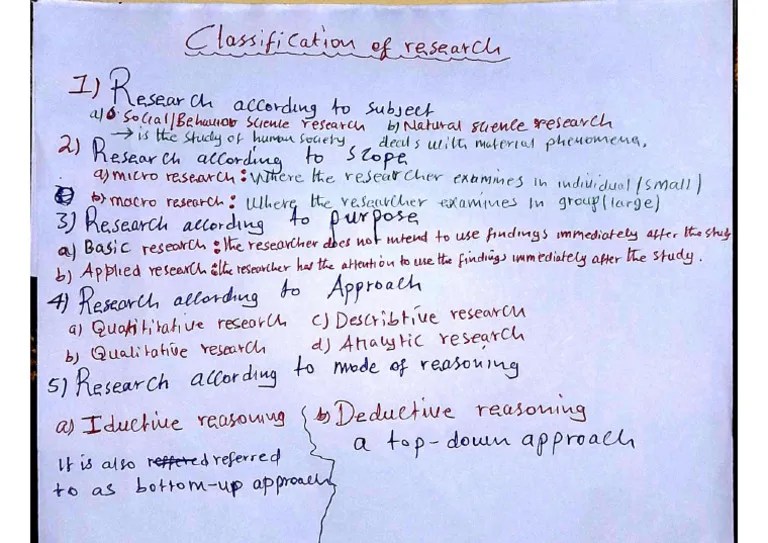 Classification of research
1) Research according to subject
a) Social/Behavior Science research b) Natural science research
→ is the study of human society deals with material phenomena.
2) Research according to scope
a) micro research: Where the researcher examines in individual/small)
b) macro research: Where the researcher examines in group(large)
3) Research according to purpose
a) Basic research: the researcher does not intend to use findings immediately after the study
b) Applied research: the researcher has the attention to use the findings immediately after the study.
4) Research according to Approach
a) Quatititative research c) Describtive research
b) Qualitative research d) Analytic research
5) Research according to mode of reasoning
a) Iductive reasoning b) Deductive reasoning
a top-down approach
It is also reffered referred
to as bottom-up approach